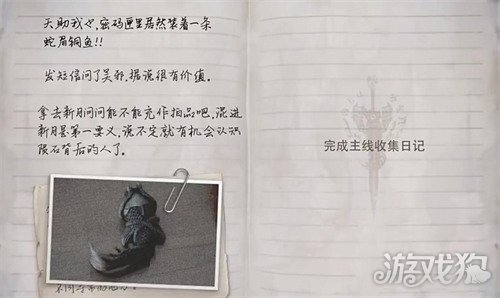 天助我也,密码匣里居然装着一条
蛇眉铜鱼!!
发短信问了吴邪,据说很有价值。
拿去新月问问能不能充作拍品吧,混进
新月是第一要义,说不定就有机会认识
陨石背后的人了。
完成主线收集日记
游戏狗